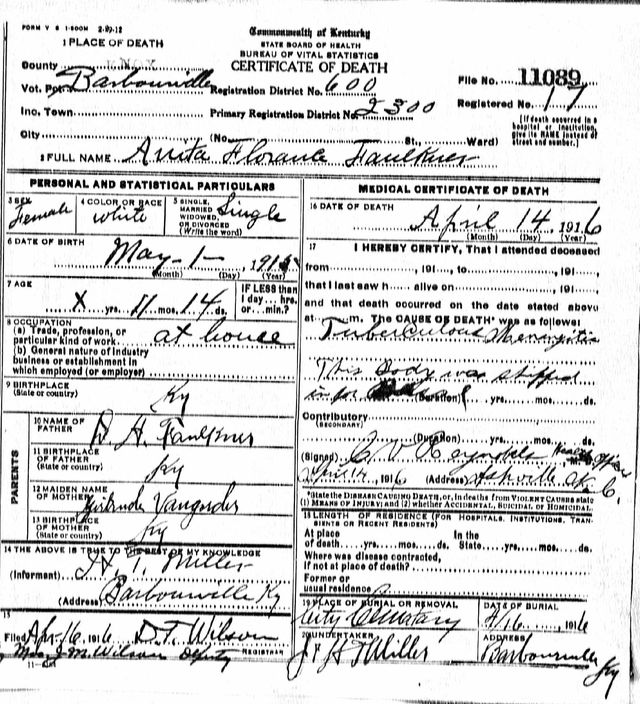 FORM V S 1-500M 2-27-12
Commonwealth of Kentucky
STATE BOARD OF HEALTH
BUREAU OF VITAL STATISTICS
CERTIFICATE OF DEATH
1 PLACE OF DEATH
County KNOX
Vot. Pct. Barbourville Registration District No. 600
File No. 11089
Inc. Town Primary Registration District No. 2300
Registered No. 17
City (No. St., Ward)
[If death occurred in a hospital or institution, give its NAME instead of street and number.]
2 FULL NAME Anita Florance Faulkner
PERSONAL AND STATISTICAL PARTICULARS
3 SEX Female
4 COLOR OR RACE white
5 SINGLE, MARRIED WIDOWED, OR DIVORCED (Write the word) Single
6 DATE OF BIRTH May - 1 - , 1915
(Month) (Day) (Year)
7 AGE X yrs. 11 mos. 14 ds.
IF LESS than 1 day... hrs. or... min.?
8 OCCUPATION
(a) Trade, profession, or particular kind of work at house
(b) General nature of industry business or establishment in which employed (or employer)
9 BIRTHPLACE (State or country) Ky
PARENTS
10 NAME OF FATHER D. H. Faulkner
11 BIRTHPLACE OF FATHER (State or country) Ky
12 MAIDEN NAME OF MOTHER Gertrude
13 BIRTHPLACE OF MOTHER (State or country) Ky
14 THE ABOVE IS TRUE TO THE BEST OF MY KNOWLEDGE
(Informant) H. T. Miller
(Address) Barbourville Ky
15
Filed Apr 16, 1916 D. T. Wilson
REGISTRAR
Mrs. J. M. Wilson Deputy
MEDICAL CERTIFICATE OF DEATH
16 DATE OF DEATH April 14, 1916
(Month) (Day) (Year)
17 I HEREBY CERTIFY, That I attended deceased
from , 191 , to , 191 ,
that I last saw h alive on , 191 ,
and that death occurred on the date stated above
at m. The CAUSE OF DEATH* was as follows:
Tuberculous Meningitis
This Body was shipped
in for
(Duration) yrs. mos. ds.
Contributory
(SECONDARY)
(Duration) yrs. mos. ds.
(Signed) C. V. Reynolds Health Officer
April 14, 1916 (Address) Ashville N. C.
*State the DISEASE CAUSING DEATH, or, in deaths from VIOLENT CAUSES state (1) MEANS OF INJURY; and (2) whether ACCIDENTAL, SUICIDAL or HOMICIDAL.
18 LENGTH OF RESIDENCE (FOR HOSPITALS, INSTITUTIONS, TRANSIENTS OR RECENT RESIDENTS)
At place of death yrs. mos. ds. In the State yrs. mos. ds.
Where was disease contracted,
If not at place of death?
Former or usual residence
19 PLACE OF BURIAL OR REMOVAL City Cemetary
DATE OF BURIAL 4/16, 1916
20 UNDERTAKER H T Miller
ADDRESS Barbourville Ky